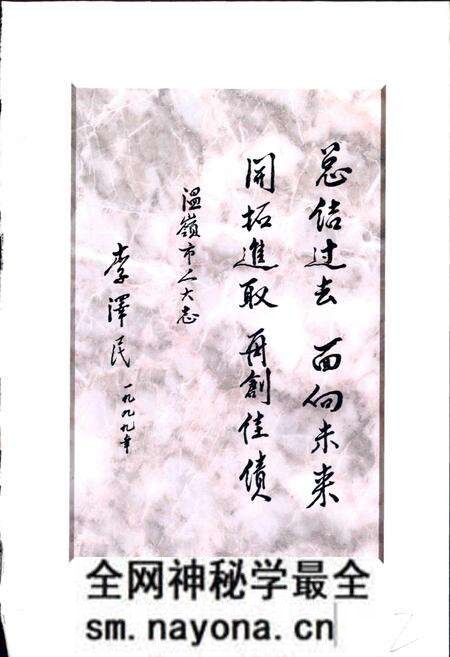 总结过去 面向未来
開拓進取 再創佳績
温嶺市人大志
李澤民 一九九九年
全网神秘学最全
sm.nayona.cn